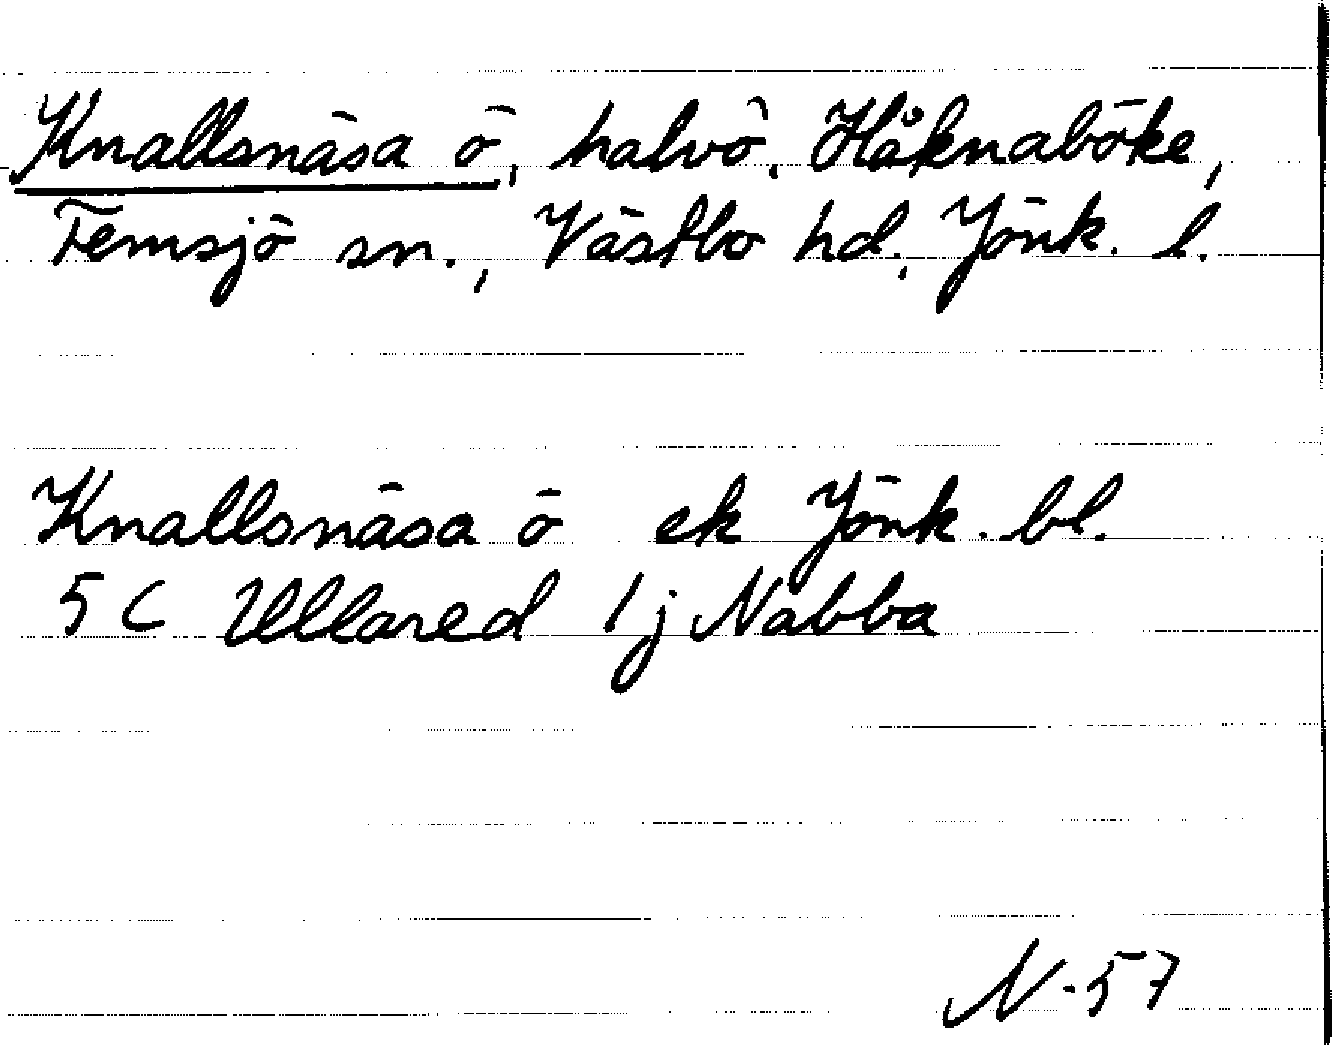 Knallsnäsa ö, halvö, Håknaböke,
Femsjö sn., Västbo hd, Jönk. l.
Knallsnäsa ö ek Jönk. bl.
5 C Ullared 1 j Nabba
N-57